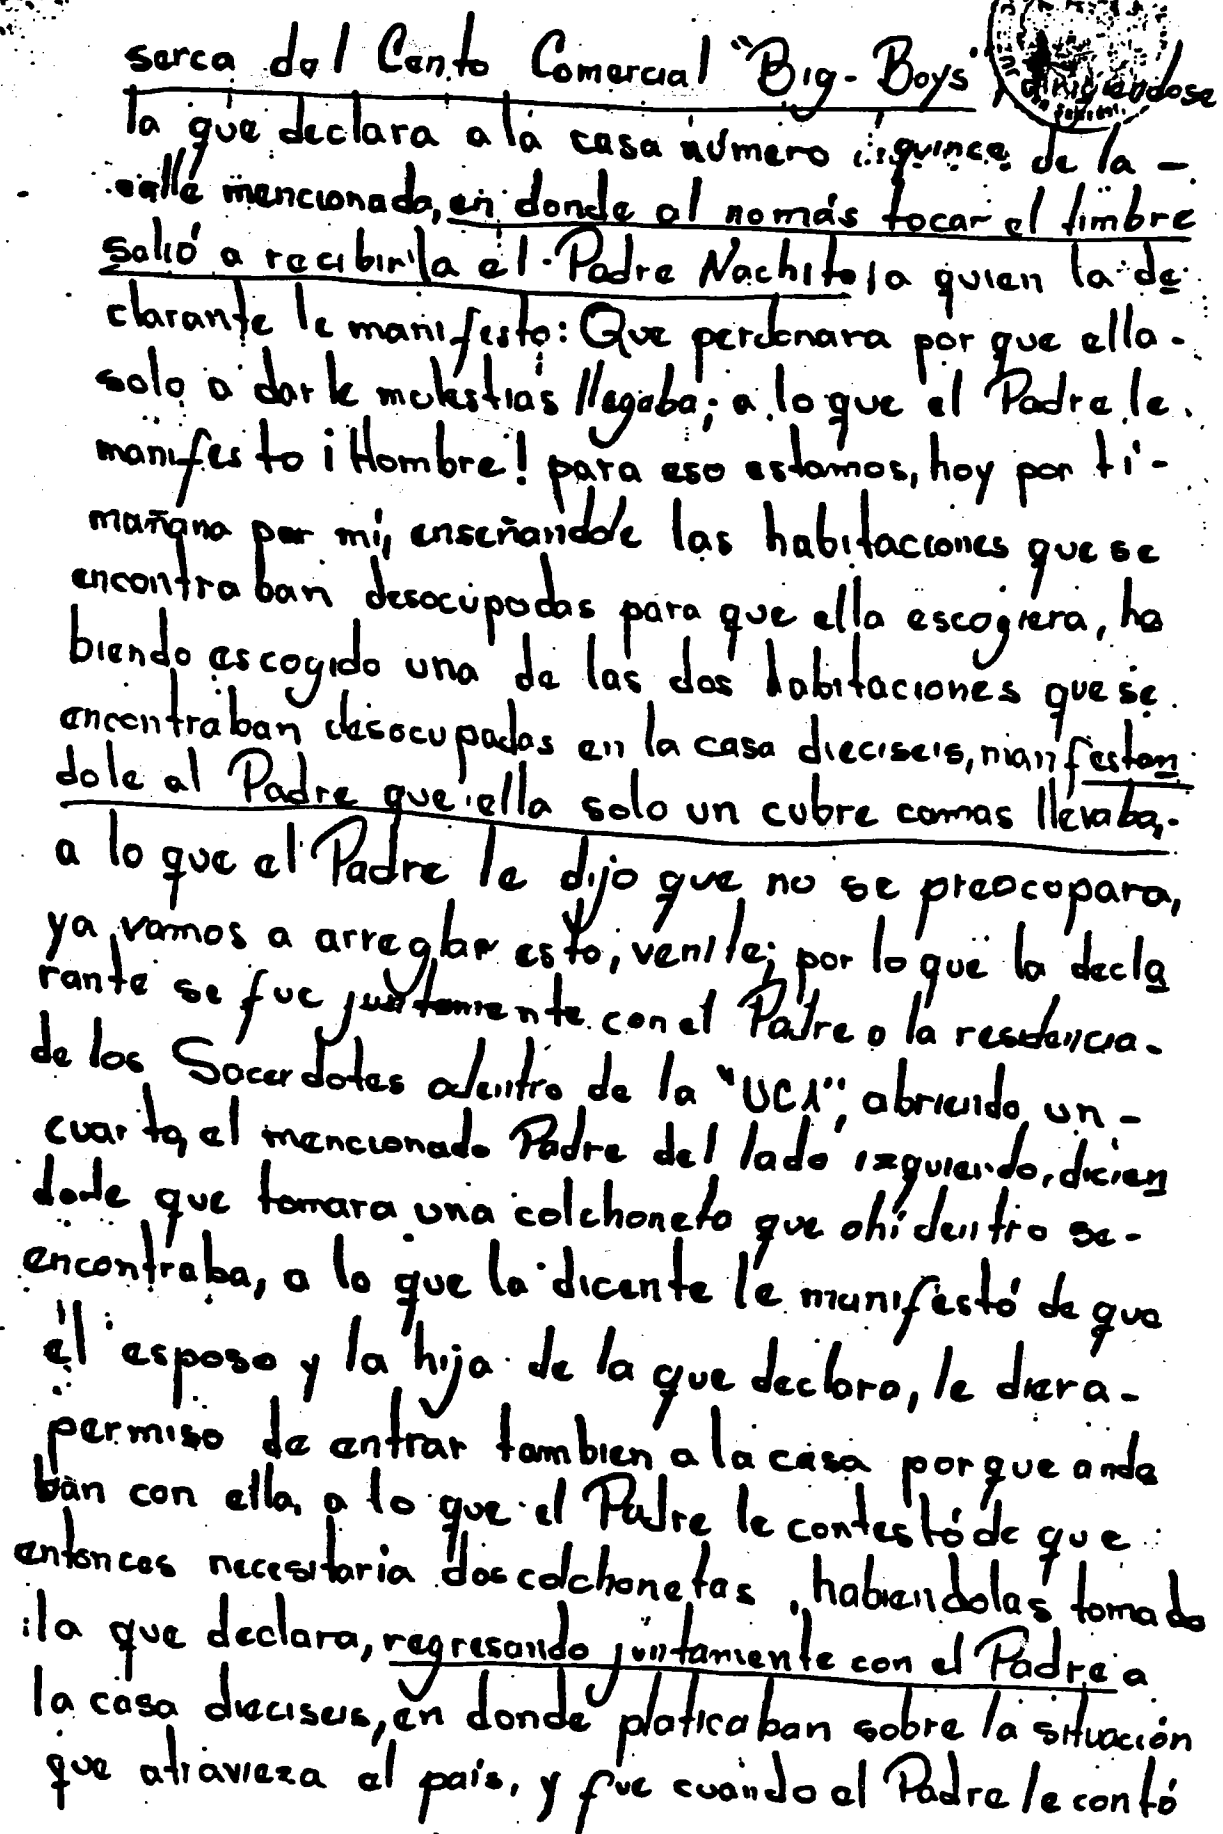 serca del Cento Comercial "Big-Boys", dirigiendose
la que declara a la casa número quince de la -
calle mencionada, en donde al nomás tocar el timbre
salió a recibirla el Padre Nachito, a quien la de
clarante le manifesto: Que perdonara por que ella -
solo a darle molestias llegaba; a lo que el Padre le
manifesto ¡Hombre! para eso estamos, hoy por ti -
mañana por mí, enseñandole las habitaciones que se
encontraban desocupadas para que ella escogiera, ha
biendo escogido una de las dos habitaciones que se
encontraban desocupadas en la casa dieciseis, manifestan
dole al Padre que ella solo un cubre camas llevaba, -
a lo que el Padre le dijo que no se preocopara,
ya vamos a arreglar esto, venite; por lo que la decla
rante se fue juntamente con el Padre a la residencia -
de los Sacerdotes adentro de la "UCA", abriendo un -
cuarto, el mencionado Padre del lado izquierdo, dicien
dole que tomara una colchoneta que ahí dentro se -
encontraba, a lo que la dicente le manifestó de que
el esposo y la hija de la que declara, le diera -
permiso de entrar tambien a la casa porque anda
ban con ella, a lo que el Padre le contestó de que
entonces necesitaria dos colchonetas, habiendolas tomado
la que declara, regresando juntamente con el Padre a
la casa dieciseis, en donde platicaban sobre la situación
que atravieza el país, y fue cuando el Padre le contó